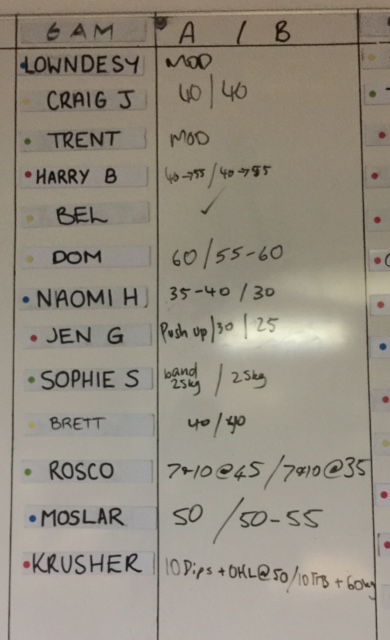 6 AM A / B
LOWNDESY MOD
CRAIG J 40/40
TRENT MOD
HARRY B 40→55/40→55
BEL ✓
DOM 60/55-60
NAOMI H 35-40/30
JEN G Push up/30/25
SOPHIE S band 25kg / 25kg
BRETT 40/40
ROSCO 7x10@45/7x10@35
MOSLAR 50/50-55
KRUSHER 10 Dips + OHL@50/10 + 60kg